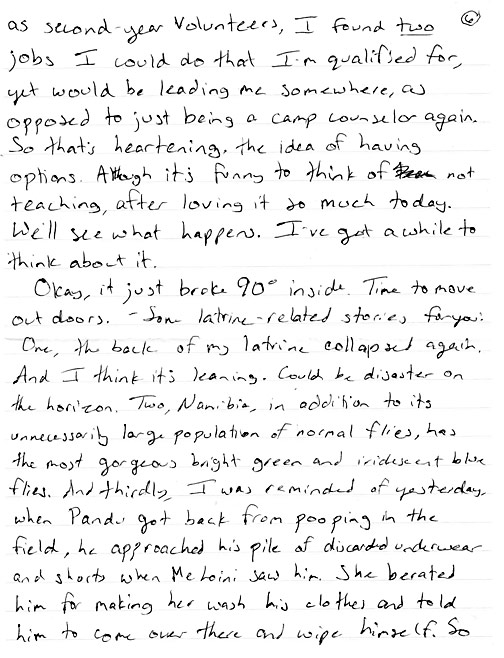 as second-year Volunteers, I found two 6
jobs I could do that I'm qualified for,
yet would be leading me somewhere, as
opposed to just being a camp counselor again.
So that's heartening, the idea of having
options. Although it's funny to think of not
teaching, after loving it so much today.
We'll see what happens. I've got a while to
think about it.
Okay, it just broke 90° inside. Time to move
outdoors. - Some latrine-related stories for you:
One, the back of my latrine collapsed again.
And I think it's leaning. Could be disaster on
the horizon. Two, Namibia, in addition to its
unnecessarily large population of normal flies, has
the most gorgeous bright green and iridescent blue
flies. And thirdly, I was reminded of yesterday,
when Pandu got back from pooping in the
field, he approached his pile of discarded underwear
and shorts when Meloini saw him. She berated
him for making her wash his clothes and told
him to come over there and wipe himself. So